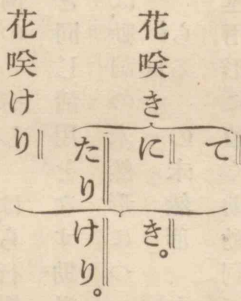 花咲き
て
に
たり
き。
けり。
花咲けり